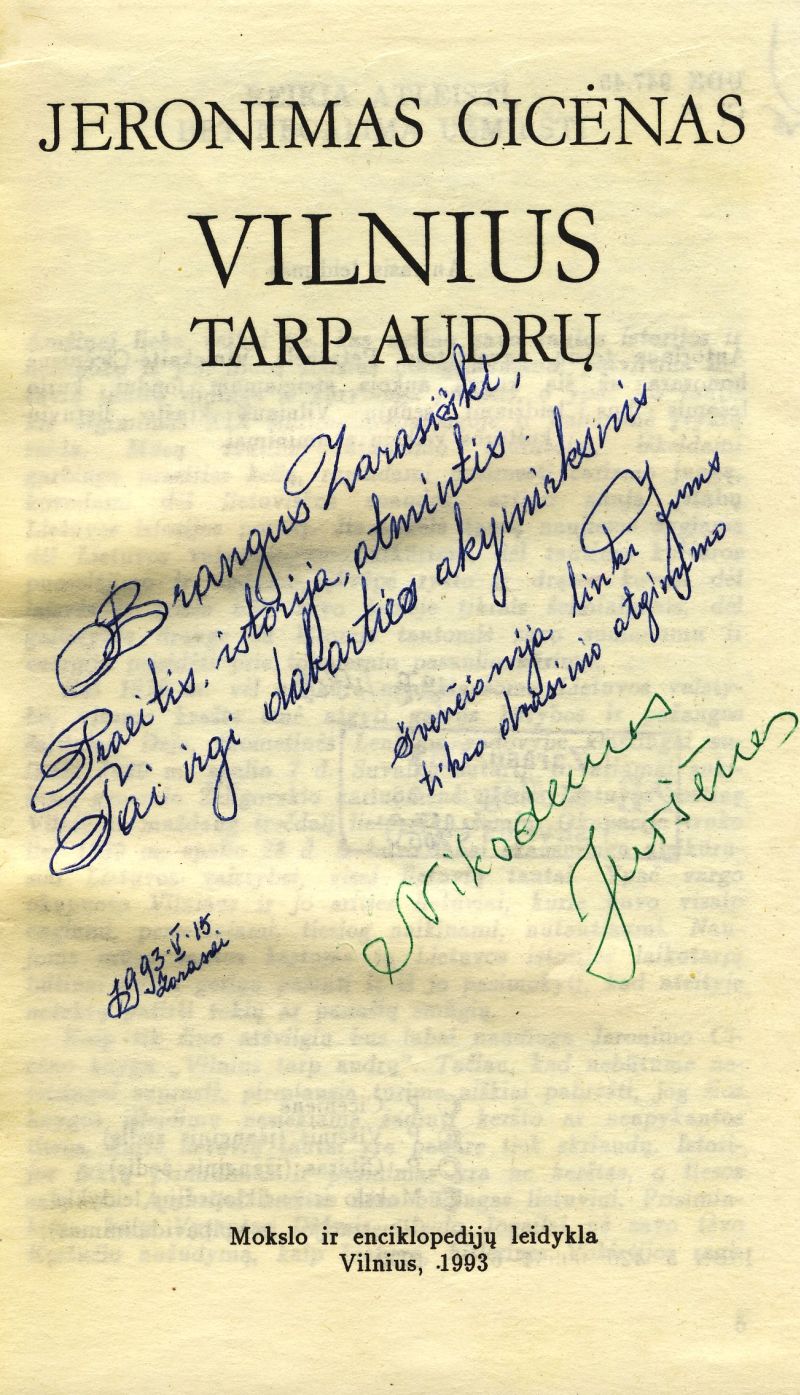 JERONIMAS CICĖNAS
VILNIUS
TARP AUDRŲ
Brangūs Zarasiški,
Praeitis, istorija, atmintis.
Tai irgi dabarties akymirksnis
Švenčionija linki Jums
tikro dvasinio atgimimo
Nikodemas
1993.V.15
Zarasai
Mokslo ir enciklopedijų leidykla
Vilnius, 1993